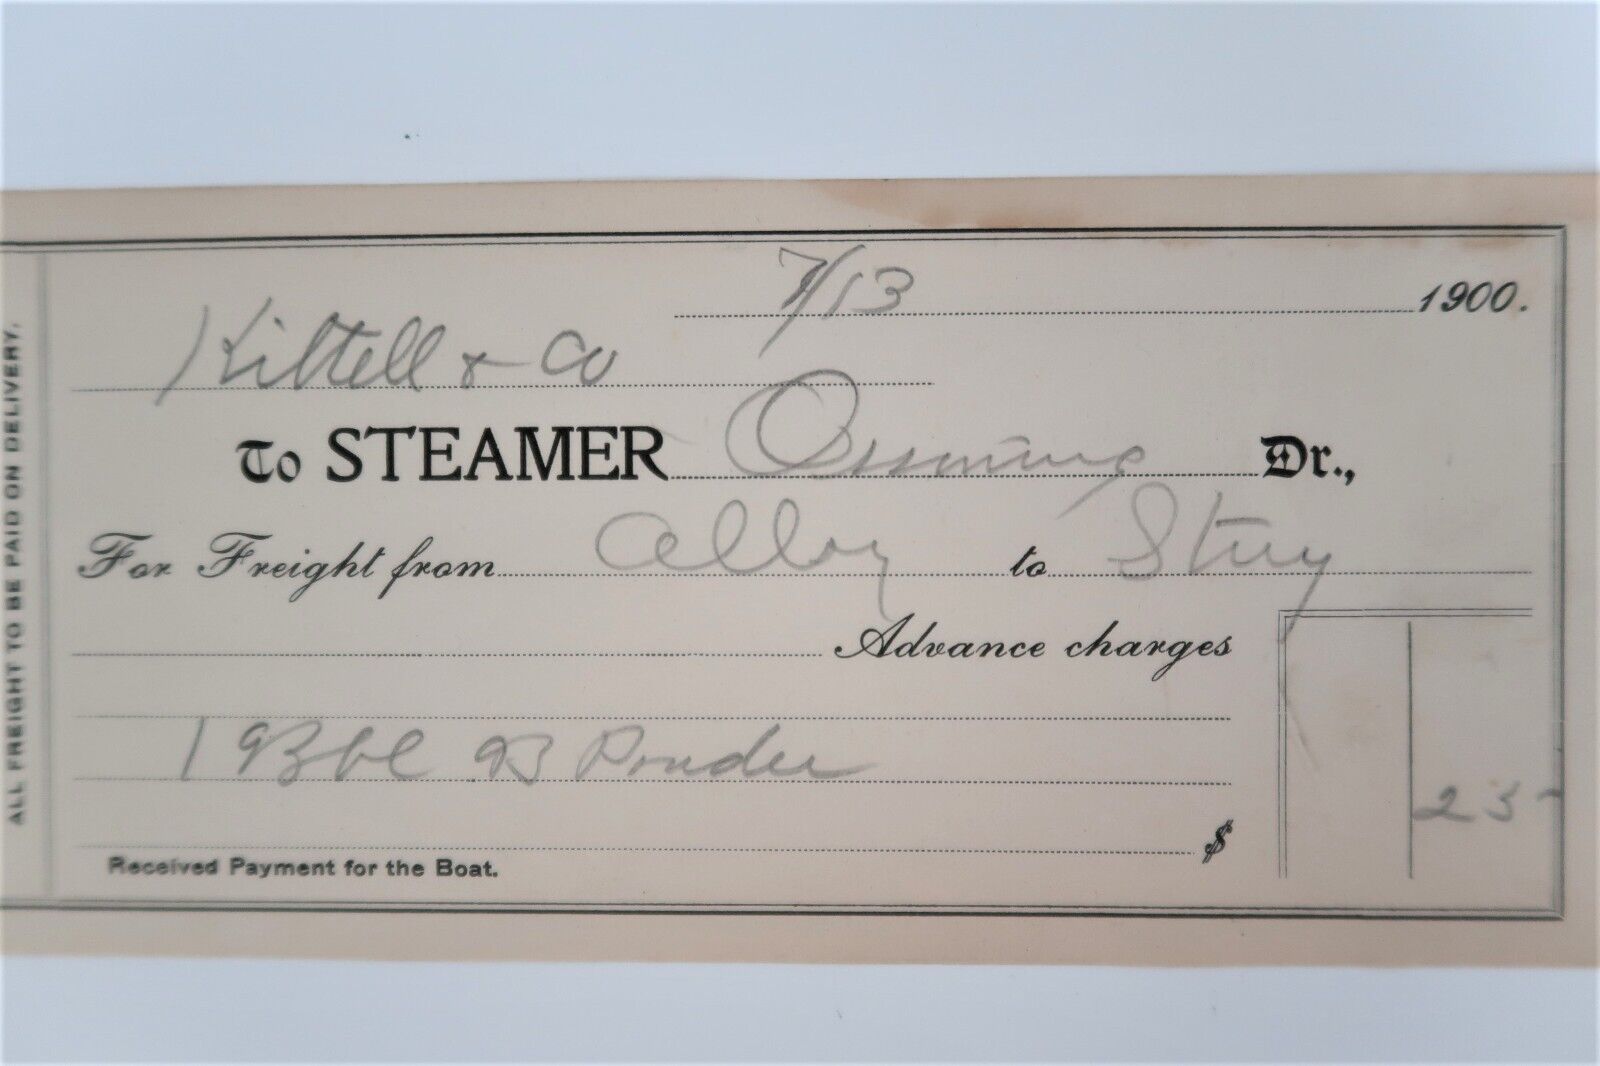 ALL FREIGHT TO BE PAID ON DELIVERY.
7/13 1900.
Kittell & Co
To STEAMER Ossining Dr.,
For Freight from Alby to Stuy
Advance charges
1 Bbl B Powder
$ 25
Received Payment for the Boat.